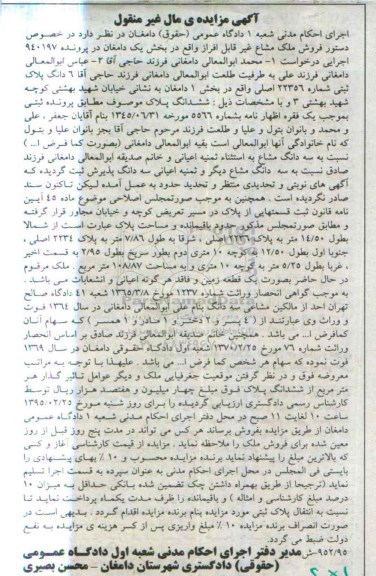 آگهی مزایده ی مال غیر منقول
اجرای احکام مدنی شعبه ۱ دادگاه عمومی (حقوقی) دامغان در نظر دارد در خصوص
دستور فروش ملک مشاع غیر قابل افراز واقع در بخش یک دامغان در پرونده ۹۴۰۱۹۷
اجرایی درخواست ۱- محمد ابوالمعالی دامغانی فرزند حاجی آقا ۲- عباس ابوالمعالی
دامغانی فرزند علی به طرفیت طلعت ابوالمعالی دامغانی فرزند حاجی آقا ۶ دانگ پلاک
ثبتی شماره ۲۲۳۵۶ اصلی واقع در بخش ۱ دامغان به نشانی خیابان شهید بهشتی کوچه
شهید بهشتی ۳ و با مشخصات ذیل : ششدانگ پلاک موصوف مطابق پرونده ثبتی
بموجب یک فقره اظهار نامه بشماره ۵۵۶۶ مورخه ۱۳۴۵/۰۶/۳۱ بنام آقایان جعفر ، علی
و محمد و بانوان بتول و علیا و طلعت فرزند مرحوم حاجی آقا بجز بانوان علیا و بتول
که نام خانوادگی آنها ابوالمعالی است بقیه ابوالمعالی دامغانی (بصورت کما فرض ا...)
نسبت به سه دانگ مشاع به استثناء ثمنیه اعیانی و خانم صدیقه ابوالمعالی دامغانی فرزند
صادق نسبت به سه دانگ مشاع دیگر و ثمنیه اعیانی سه دانگ پذیرش ثبت گردیده که
آگهی های نوبتی و تحدیدی منتظر و تحدید حدود به عمل آمده لیکن تاکنون سند
صادر نگردیده است . همچنین به موجب صورتمجلس اصلاحی موضوع ماده ۴۵ آیین
نامه قانون ثبت قسمتهایی از پلاک در مسیر تعریض کوچه و خیابان مجاور قرار گرفته
و مطابق صورتمجلس مذکور حدود باقیمانده و مساحت پلاک عبارت است از شمالا
بطول ۱۴/۵۰ متر به پلاک ۲۲۳۶ اصلی ، شرقا به طول ۷/۸۶ متر به پلاک ۲۲۳۴ اصلی ،
جنوبا اول بطول ۱۲/۵۰ به کوچه ۱۰ متری دوم بطور سریخ بطول ۲/۹۵ به قسمت اخیر
، غربا بطول ۵/۲۵ متر به کوچه ۱۰ متری و به مساحت ۱۰۸/۸۷ متر مربع . ملک مرقوم
در حال حاضر بصورت یک قطعه زمین و فاقد هر گونه اعیانی و انشعابات می باشد .
به موجب گواهی انحصار وراثت شماره ۱۲۳۷ مورخ ۱۳۶۵/۳/۸ شعبه ۴۱ دادگاه صالح
تهران احد از مالکین مشاعی سه دانگ بنام علی ابوالمعالی دامغانی در سال ۱۳۶۴ فوت
و وراث وی عبارتند از ( ۴ پسر و ۲ دختر و ۱ مادر و ۱ همسر ) که سهام آنان
کمافرض ا... می باشد . همچنین خانم صدیقه ابوالمعالی فرزند صادق بر اساس انحصار
وراثت شماره ۷۶ مورخ ۱۳۷۰/۲/۲۵ شعبه اول دادگاه حقوقی دامغان در سال ۱۳۶۹
فوت نموده که سهام هر شخص کما فرض ا... می باشد . علیهذا با توجه به مراتب
معروضه فوق و در نظر گرفتن موقعیت جغرافیایی ملک و دیگر عوامل تاثیر گذار هر
متر مربع از ششدانگ پلاک فوق مبلغ چهار میلیون و هفتصد هزار ریال توسط
کارشناس رسمی دادگستری ارزیابی گردیده را برای روز شنبه مورخ ۱۳۹۵/۰۲/۲۵
ساعت ۱۰ لغایت ۱۱ صبح در محل دفتر اجرای احکام مدنی شعبه ۱ دادگاه عمومی
دامغان از طریق مزایده بفروش برساند هر کس می تواند در مدت پنج روز قبل از روز
معین شده برای فروش ملک را ملاحظه نماید . مزایده از قیمت کارشناسی آغاز و کسی
که بالاترین مبلغ را پیشنهاد نماید برنده مزایده محسوب و ۱۰٪ بهای پیشنهادی را
بایستی فی المجلس در محل اجرای احکام مدنی به عنوان سپرده به قسمت اجرا تسلیم
نماید (ترجیحا از طریق بهمراه داشتن چک تضمین شده بانکی حداقل به میزان ۱۰
درصد مبلغ کارشناسی و امثاله ) و باقیمانده را ظرف مدت یکماه پرداخت نماید تا
نسبت به انتقال پلاک ثبتی مورد مزایده بنام برنده مزایده اقدام گردد . بدیهی است در
صورت انصراف برنده مزایده ۱۰٪ مبلغ واریزی پس از کسر هزینه ی مزایده به نفع
دولت ضبط می گردد.
۹۵۲/۹۵-ش مدیر دفتر اجرای احکام مدنی شعبه اول دادگاه عمومی
(حقوقی) دادگستری شهرستان دامغان - محسن بصیری